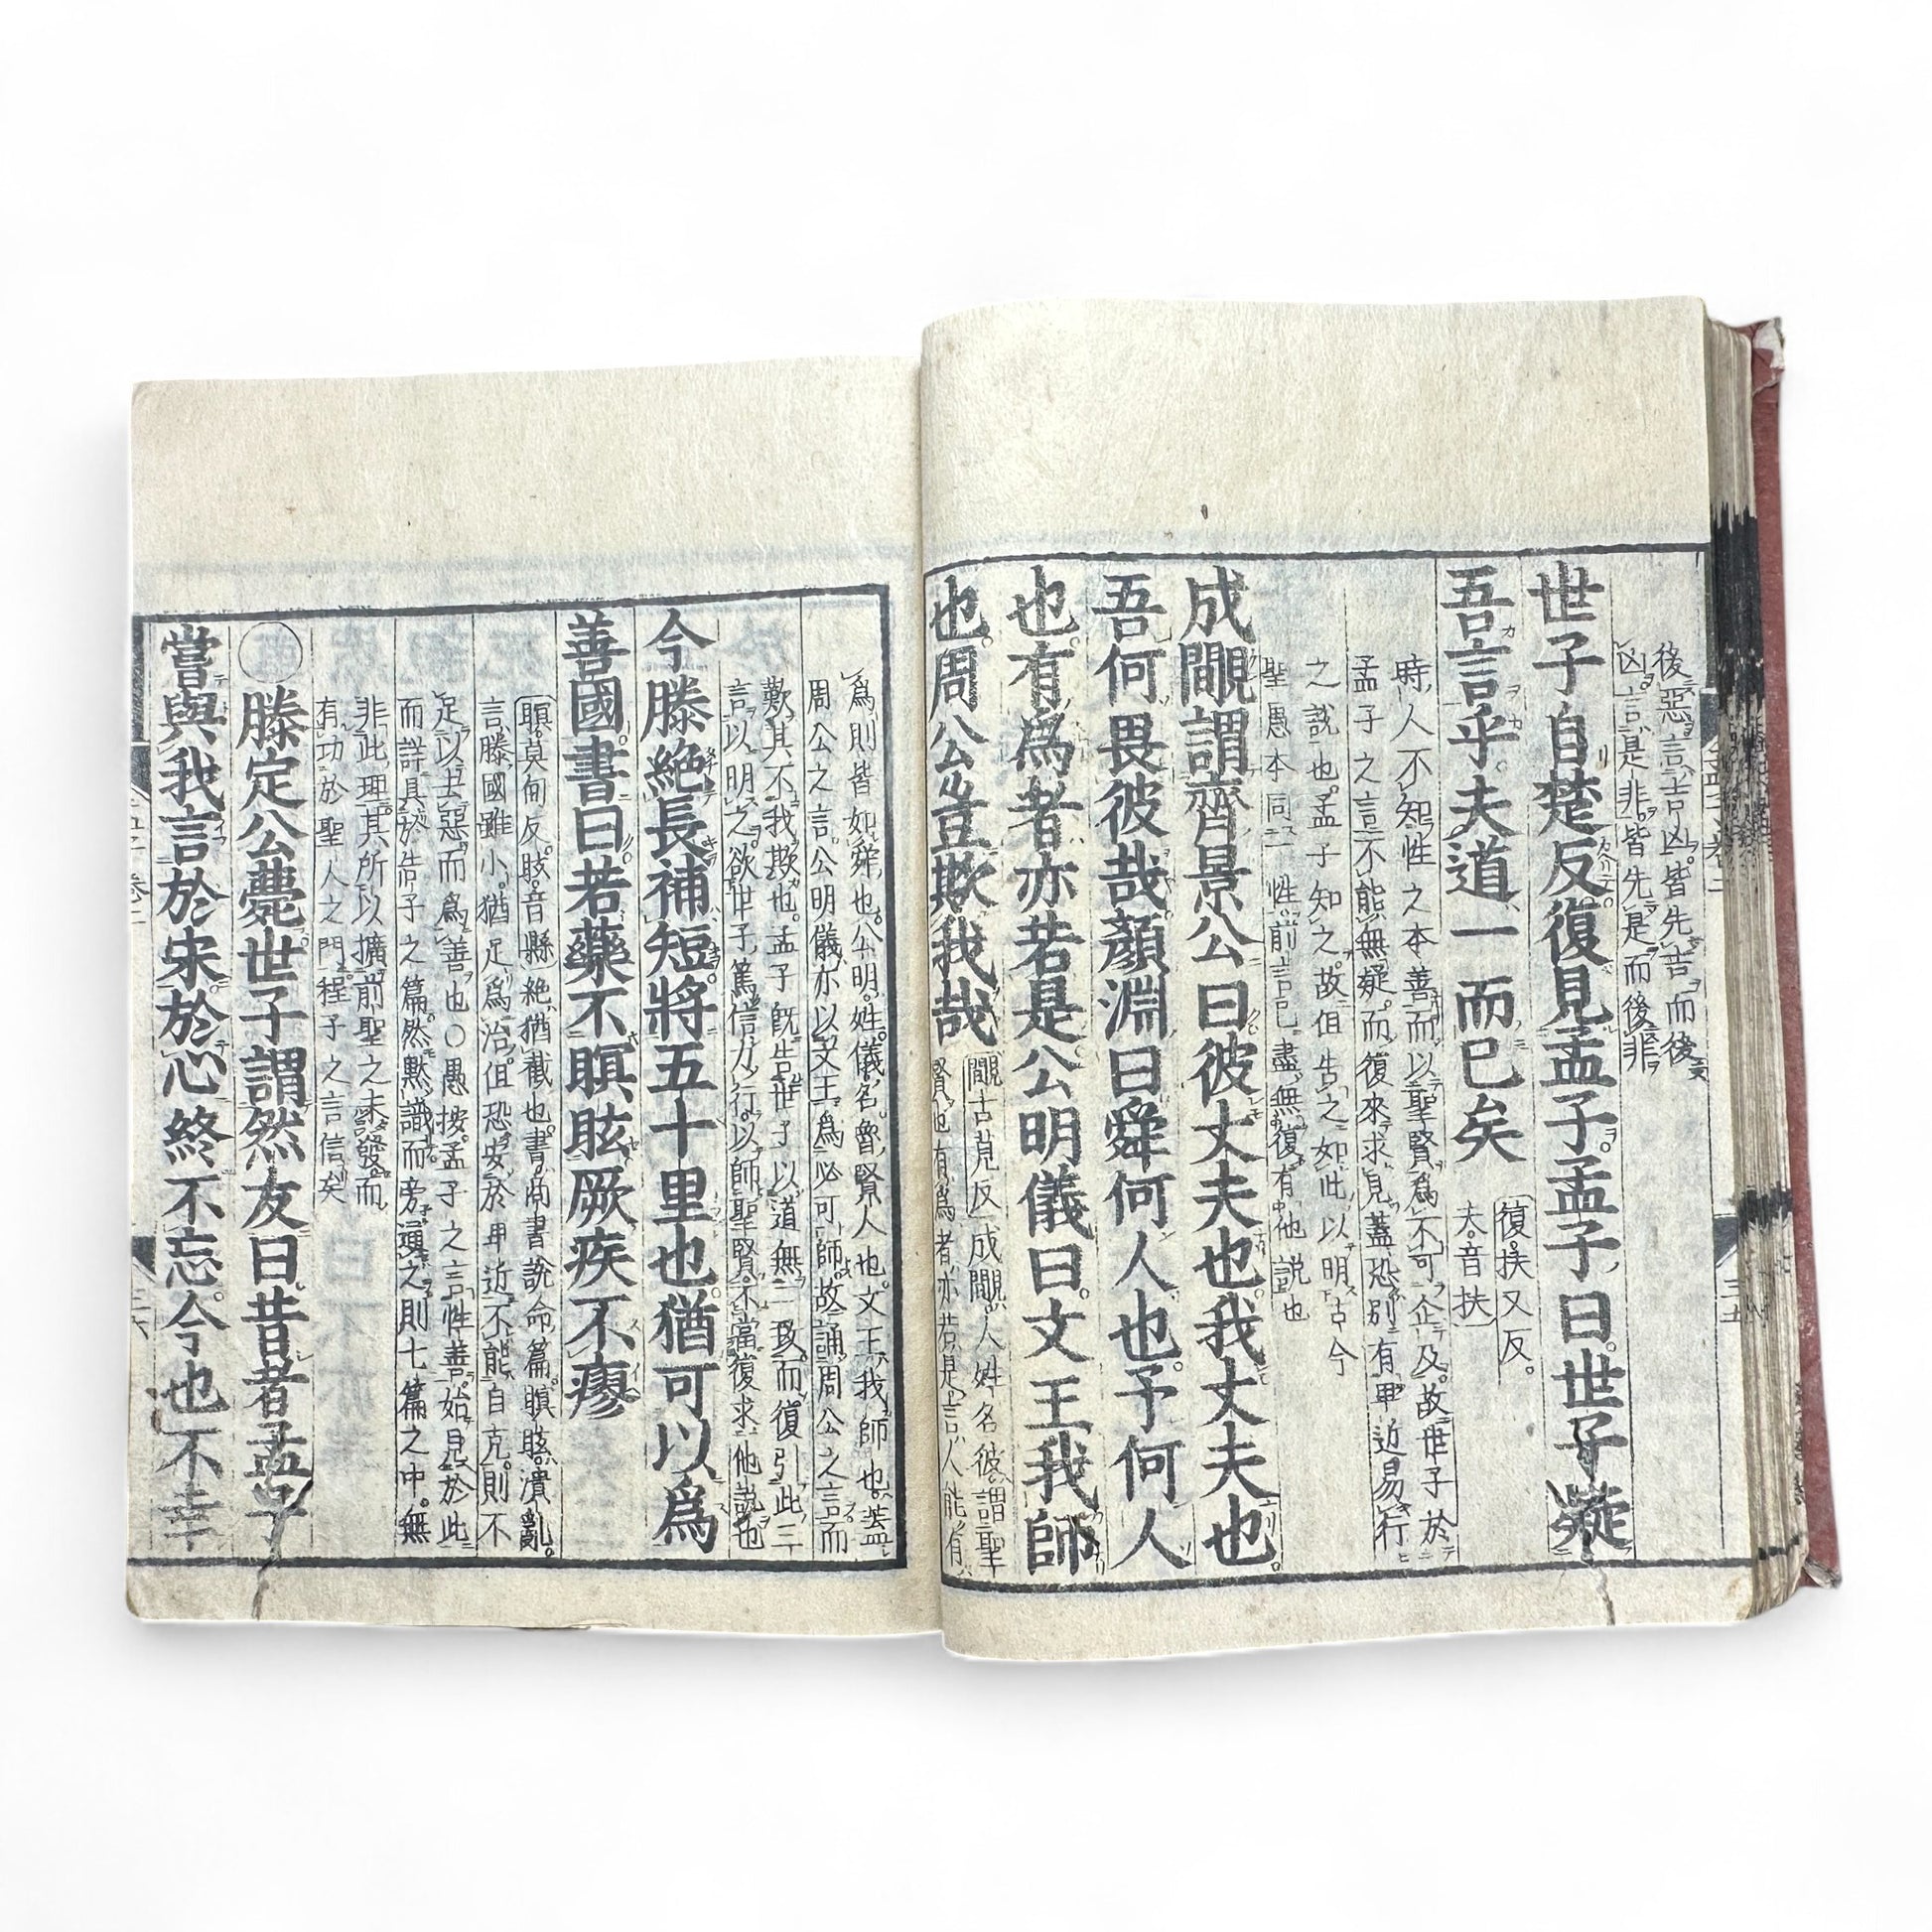 後惡言吉凶皆先吉而後
凶言是非皆先是而後非
世子自楚反復見孟子孟子曰世子疑
吾言乎夫道一而已矣
復扶又反
夫音扶
時人不知性之本善而以聖賢爲不可企及故世子於
孟子之言不能無疑而復來求見蓋恐別有卑近易行
之説也孟子知之故但告之如此以明古今
聖愚本同一性前言已盡無復有他説也
成覸謂齊景公曰彼丈夫也我丈夫也
吾何畏彼哉顏淵曰舜何人也予何人
也有爲者亦若是公明儀曰文王我師
也周公豈欺我哉
覸古莧反成覸人姓名彼謂聖
賢也有爲者亦若是言人能有
爲則皆如舜也公明姓儀名魯賢人也文王我師也蓋
周公之言公明儀亦以文王爲必可師故誦周公之言而
歎其不我欺也孟子既告世子以道無二致而復引此三
言以明之欲世子篤信力行以師聖賢不當復求他説也
今滕絶長補短將五十里也猶可以爲
善國書曰若藥不瞑眩厥疾不瘳
瞑莫甸反眩音縣絶猶截也書商書説命篇瞑眩潰亂
言滕國雖小猶足爲治但恐安於卑近不能自克則不
足以去惡而爲善也○愚按孟子之言性善始見於此
而詳具於告子之篇然黙識而旁通之則七篇之中無
非此理其所以擴前聖之未發而
有功於聖人之門程子之言信矣
○滕定公薨世子謂然友曰昔者孟子
嘗與我言於宋於心終不忘今也不幸